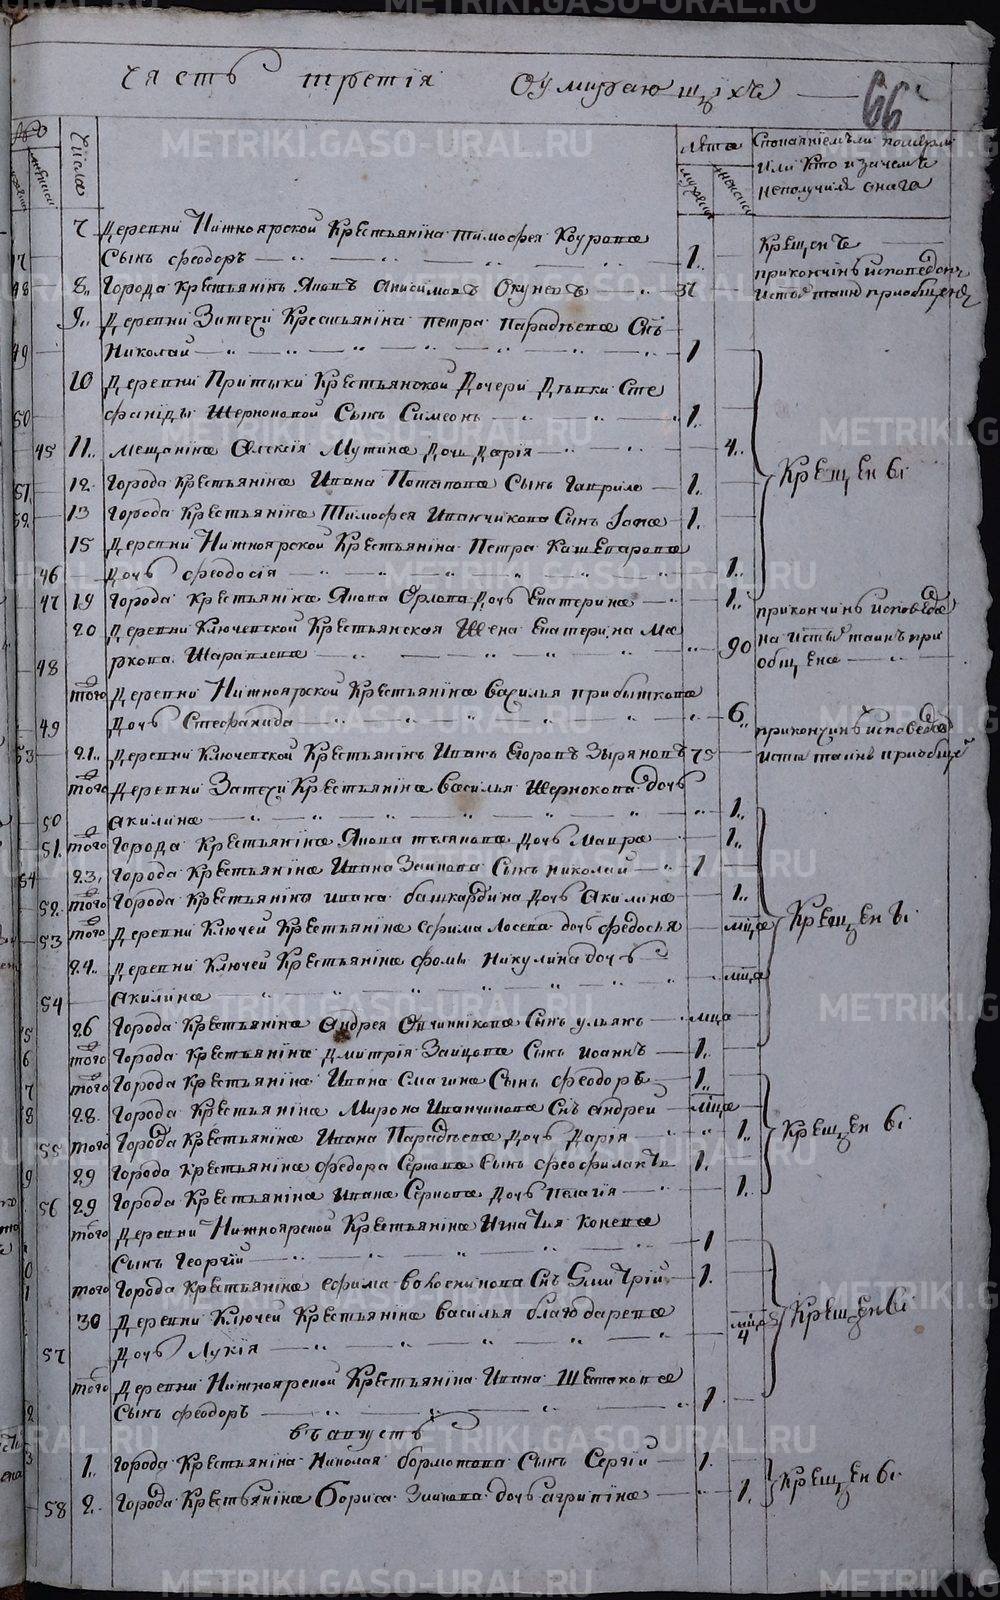 Часть третія Оумирающихъ — 66
Числа
Лѣта
мужеска
женска
Споваяніемъли померли
или Кто и зачемъ
неполучилъ онаго
47 7 Деревни Нижноярской Крестьянина Тимофея Коурова
Сынъ феодоръ 1. Крещенъ
48 8. Города Крестьянинъ Яковъ Анисимовъ Окуневъ 37
прикончинѣ исповедонъ
исты таинъ приобщенъ
9. Деревни Затечи Крестьянина Петра Парадѣева Снъ
49 Николай 1
10 Деревни Притыки Крестьянской Дочери Дѣвки Сте
50 фаниды Шерноновой Сынъ Симеонъ 1.
45 11. Мещанина Алексія Мутина Дочь Дарія 4.
51 12 Города Крестьянина Ивана Потапова Сынъ Гаврило 1.
Крещены
52 13 Города Крестьянина Тимофея Иванчикова Сынъ Іона 1.
15 Деревни Нижноярской Крестьянина Петра Кашеварова
46 Дочь феодосія 1.
47 19 Города Крестьянина Якова Орлова Дочь Екатерина 1.
20 Деревни Ключевской Крестьянская Жена Екатерина Ма
48 ркова Шаравлева 90
прикончинѣ исповеда
на исты таинъ при
общена
того Деревни Нижноярской Крестьянина Василья прибыткова
49 Дочь Стефанида 6.
53 21. Деревни Ключевской Крестьянинъ Иванъ Егоровъ Зыряновъ 75
прикончинѣ исповедонъ
исты таинъ приобще
того Деревни Затечи Крестьянина Василья Шернокова дочь
50 Акилина 1.
51. того Города Крестьянина Якова телянова Дочь Мавра 1.
54 23. Города Крестьянина Ивана Заикова Сынъ николай 1
52. того Города Крестьянинъ ивана башкардина Дочь Акилина 1.
Крещены
53 того Деревни Ключей Крестьянина Ефима Лосева дочь федосья мца
24. Деревни Ключей Крестьянина фомы никулина дочь
54 Акилина мца
5 26 Города Крестьянина Андрея Овчинникова Сынъ ульянъ мца
6 того Города Крестьянина Дмитрія Зайцова Сынъ иоаннъ 1.
7 того Города Крестьянина Ивана Смагина Сынъ феодоръ 1.
8 28. Города Крестьянина Мирона Иванчикова Снъ андреи мца
55 того Города Крестьянина Ивана Парадѣева Дочь Дарія 1.
Крещены
9 29 Города Крестьянина федора Сернова Сынъ феофилактъ 1.
56 29 Города Крестьянина Ивана Сернова Дочь пелагия 1.
того Деревни Нижноярской Крестьянина Игнатия Конева
0 Сынъ Георгіи 1
1 того Города Крестьянина Ефима волосникова Снъ Дмитрій 1.
30 Деревни Ключей Крестьянина василья благодарева
57 Дочь Лукія мца 4
Крещены
того Деревни Нижноярской Крестьянина Ивана Шестакова
2 Сынъ феодоръ 1
въ августѣ
3 1. Города Крестьянина Николая бормотова Сынъ Сергій 1.
58 2. Города Крестьянина бориса Заикова дочь агрипина 1.
Крещены
METRIKI.GASO-URAL.RU